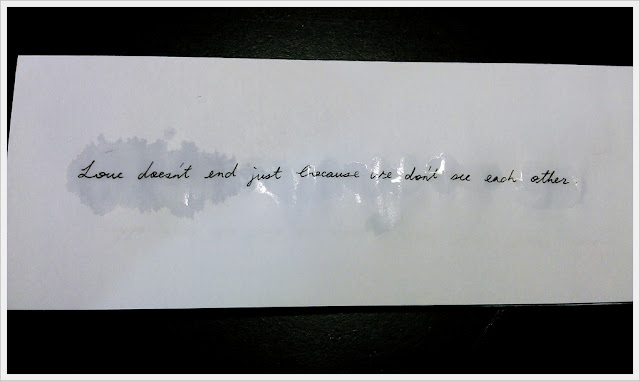 Love doesn't end just because we don't see each other